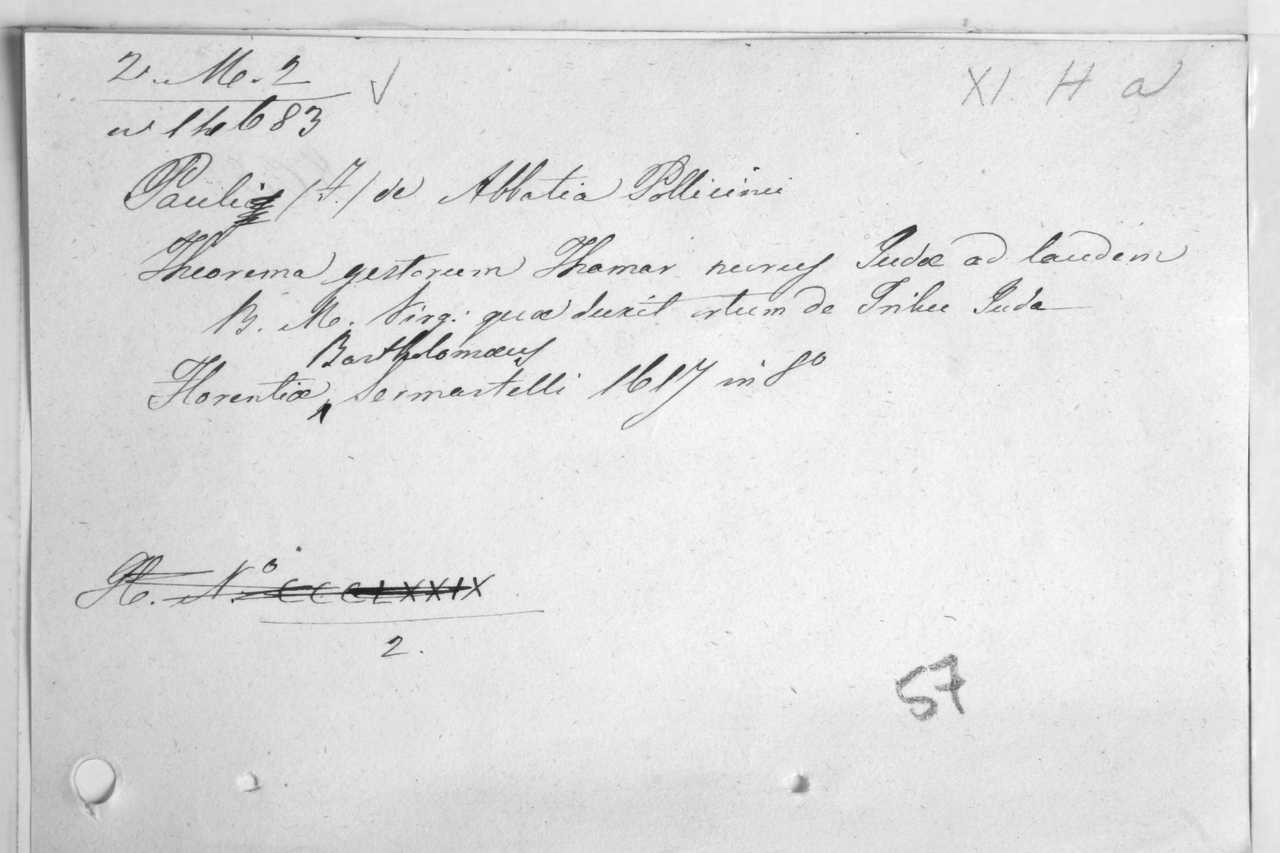 2. M. 2 XI H a
83
Pauli /F./ de Abbatia Pollicini
Theorema gestorum Thamar nurus Judæ ad laudem
B. M. Virg: quæ duxit ortum de Tribu Juda
Bartholomæus
Florentiæ, Sermartelli 1617 in 8º
H. Nº CCCLXXIX
2.
57